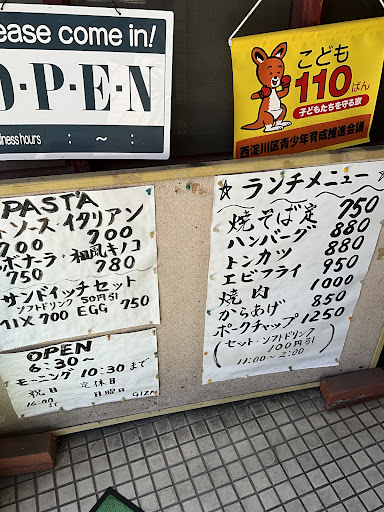 ease come in!
O·P·E·N
iness hours : ~ :
こども
110ばん
子どもたちを守る家
西淀川区青少年育成推進会議
PASTA
トソース・イタリアン
700 700
ボナーラ・和風キノコ
750 780
サンドイッチセット
ソフトドリンク 50円引
MIX 700 EGG 750
OPEN
6:30~
モーニング 10:30まで
祝日 定休日
16:00まで 日曜日 GIZA
☆ランチメニュー☆
焼そば定 750
ハンバーグ 880
トンカツ 880
エビフライ 950
焼肉 1000
からあげ 850
ポークチャップ 1250
(セット・ソフトドリンク
100円引)
11:00~2:00